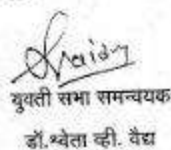 युवती सभा समन्वयक
डॉ.श्वेता व्ही. वैद्य